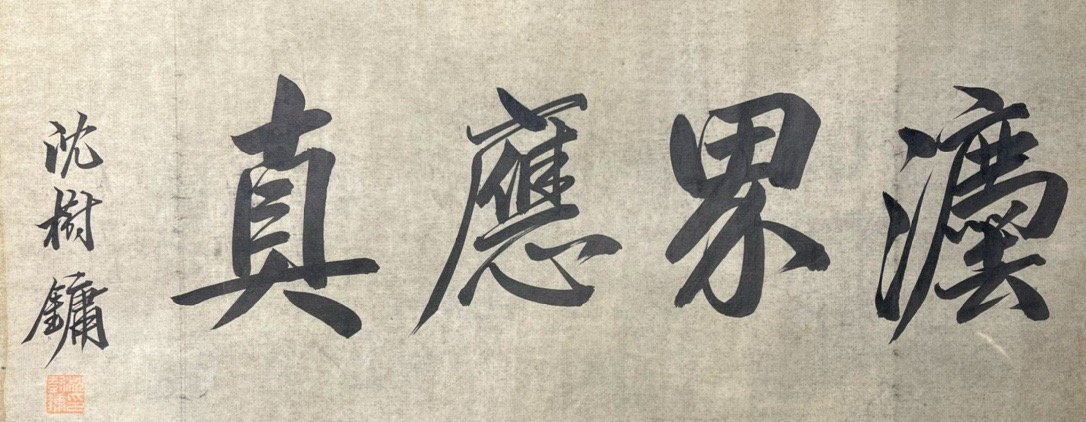 灋界應真
沈樹鏞